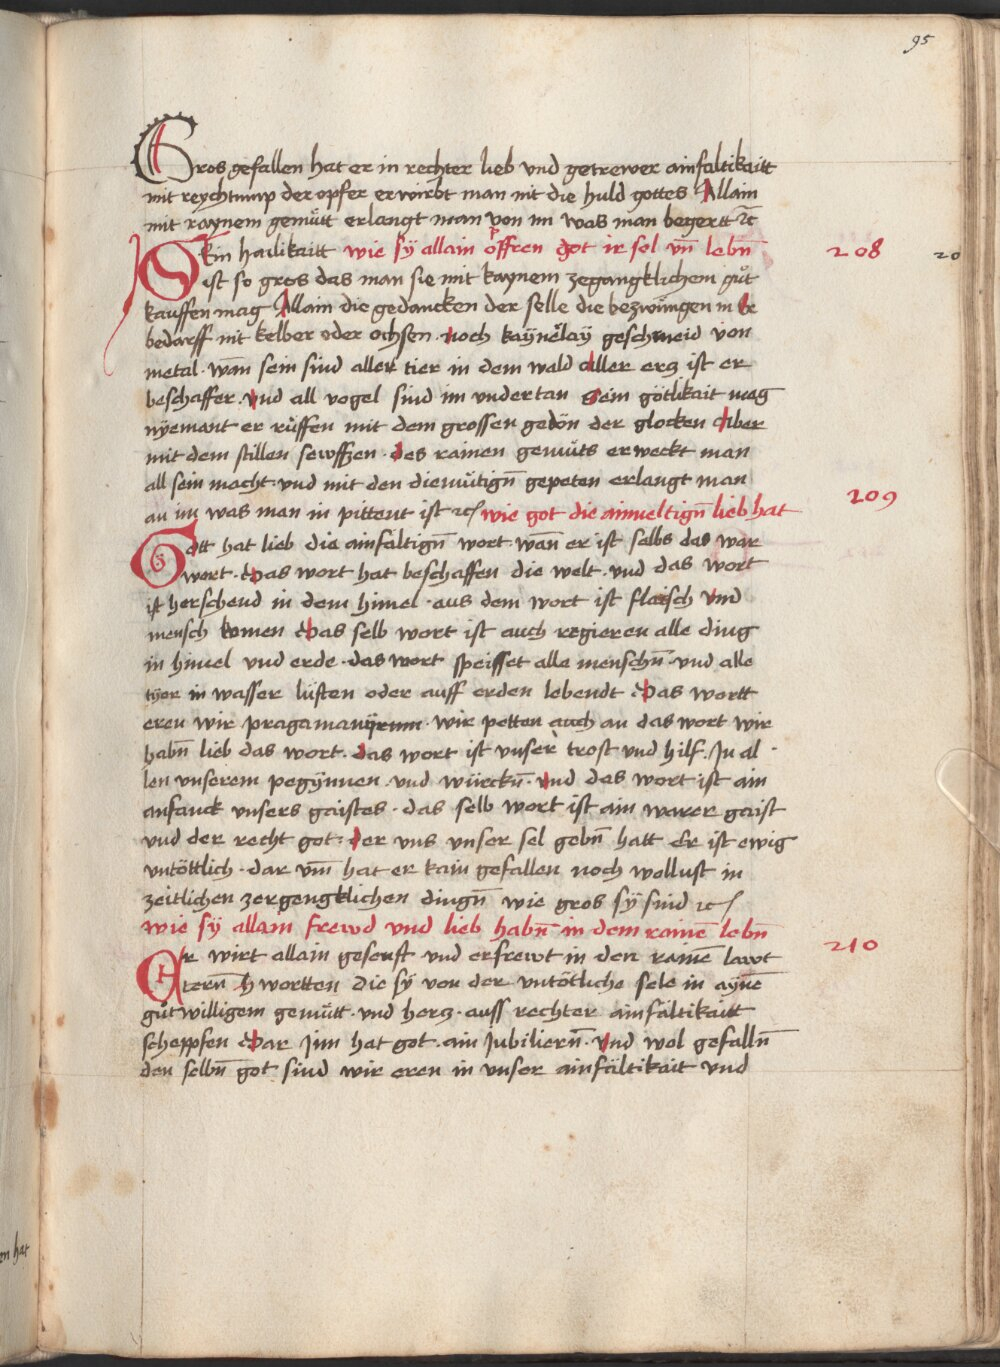 95
Gros gefallen hat er in rechter lieb vnd getrewer ainfaltikaitt
mit reychtump der opfer erwirbt man nit die huld gottes Allain
mit raynem gemütt erlangt man von im was man begertt ꝛc̄
Sein hailikaitt wie sÿ allain opffren got ir sol vn̄ lebn̄ 208
20
ist so gros das man sie mit kaynem zegangklichem gůt
kauffen mag Allain die gedancken der selle die bezwüngen in Er
bedarff nit kelber oder ochsen. noch kaÿnerlaÿ geschmeid von
metal. wan̄ sein sind aller tier in dem wald aller ercz ist er
beschaffer. vnd all vogel sind im vndertan Sein götlikait mag
nÿemant er rüffen mit dem grossen gedön der glocken Aber
mit dem stillen sewffzen. des rainen gemüts erweckt man
all sein macht. vnd mit den diemütign̄ gepeten erlangt man
an im was man in pittent ist ꝛc̄ wie got die ainueltign̄ lieb hat 209
Gott hat lieb die ainfaltign̄ wort. wan̄ er ist selbs das war
wort. Das wort hat beschaffen die welt. vnd das wort
ist herschend in dem himel. aus dem wort ist flaisch vnd
mensch komen Das selb wort ist auch regieren alle ding
in himel vnd erde. das wort speisset alle menschn̄. vnd alle
tyer in wasser lüften oder auff erden lebendt Das wortt
eren wir pragamanÿrum. wir petten auch an das wort wir
habn̄ lieb das wort. das wort ist vnser trost vnd hilf. In al
len vnserem pegÿnnen. vnd würckn̄. vnd das wort ist ain
anfanck vnsers gaistes. das selb wort ist ain warer gaist
vnd der recht got. der vns vnser sel gebn̄ hatt Er ist ewig
vntöttlich. dar vm̄ hat er kain gefallen noch wollust in
zeitlichen zergengklichen dingn̄ wie gros sÿ sind ꝛc̄
wie sÿ allain frewd vnd lieb habn̄ in dem rainē lebn̄ 210
Er wirt allain gesenft vnd erfrewt in den rainē lawt
tern̄ wortten die sÿ von der vntötliche sele in aÿnē
gůtwilligem gemütt. vnd hercz. auss rechter ainfaltikaitt
scheppfen Dar Inn hat got. ain Jubiliern̄. vnd wol gefalln̄
den selbn̄ got sind wir eren in vnser ainfältikait vnd
en hat